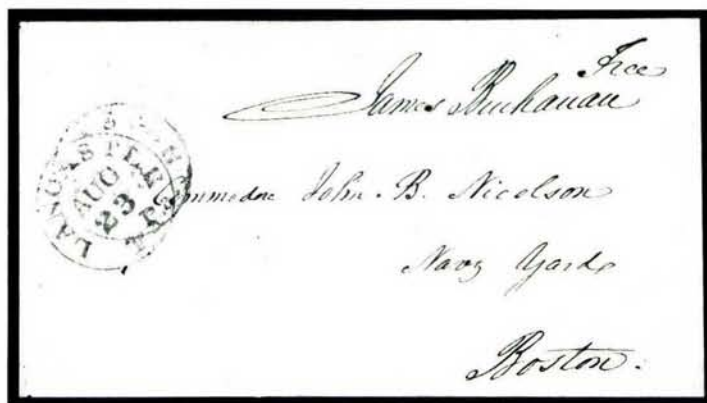 Free
James Buchanan
LANCASTER
AUG
23
Commodore John. B. Nicolson
Navy Yard
Boston.